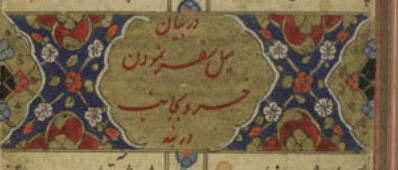 در بیان
میل سفر نمودن
خسرو بجانب